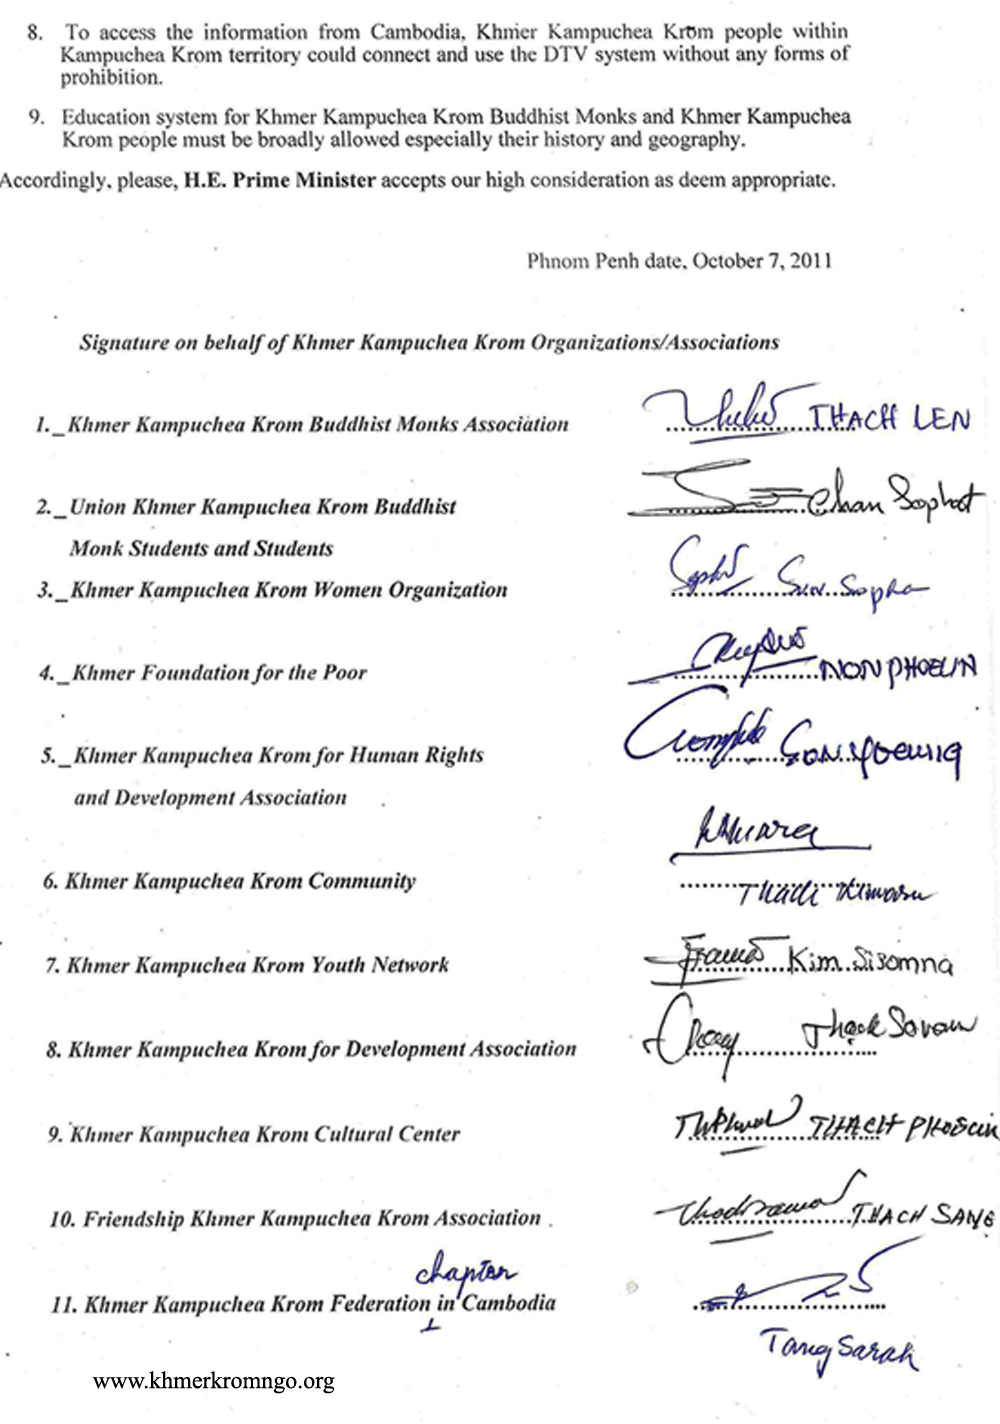 8. To access the information from Cambodia, Khmer Kampuchea Krom people within
Kampuchea Krom territory could connect and use the DTV system without any forms of
prohibition.
9. Education system for Khmer Kampuchea Krom Buddhist Monks and Khmer Kampuchea
Krom people must be broadly allowed especially their history and geography.
Accordingly, please, H.E. Prime Minister accepts our high consideration as deem appropriate.
Phnom Penh date, October 7, 2011
Signature on behalf of Khmer Kampuchea Krom Organizations/Associations
1._Khmer Kampuchea Krom Buddhist Monks Association THACH LEN
2._Union Khmer Kampuchea Krom Buddhist Chan Sophat
Monk Students and Students
3._Khmer Kampuchea Krom Women Organization Sun Sopha
4._Khmer Foundation for the Poor NONPHOEUN
5._Khmer Kampuchea Krom for Human Rights SON YOEUNG
and Development Association
6. Khmer Kampuchea Krom Community Thach
7. Khmer Kampuchea Krom Youth Network Kim Sisomna
8. Khmer Kampuchea Krom for Development Association Thach Savan
9. Khmer Kampuchea Krom Cultural Center THACH
10. Friendship Khmer Kampuchea Krom Association THACH SANG
chapter
11. Khmer Kampuchea Krom Federation in Cambodia
Tang Sarah
www.khmerkromngo.org